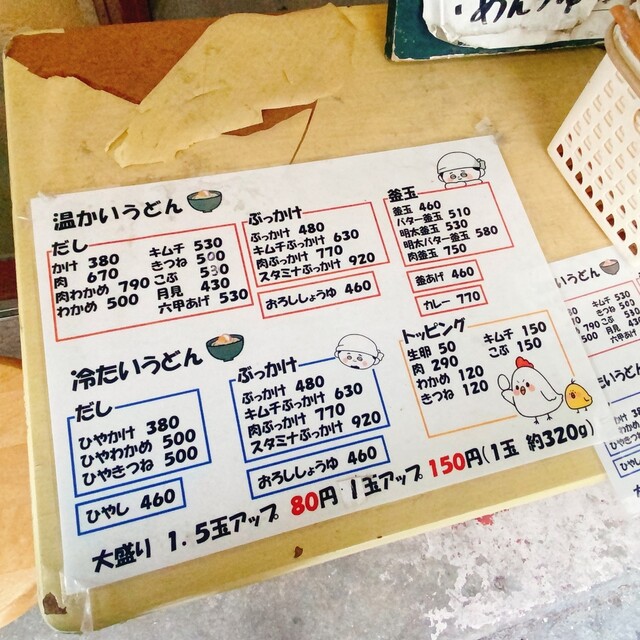 めんつゆ
温かいうどん
だし
かけ 380
肉 670
肉わかめ 790
わかめ 500
キムチ 530
きつね 500
こぶ 530
月見 430
六甲あげ 530
ぶっかけ
ぶっかけ 480
キムチぶっかけ 630
肉ぶっかけ 770
スタミナぶっかけ 920
おろししょうゆ 460
釜玉
釜玉 460
バター釜玉 510
明太釜玉 530
明太バター釜玉 580
肉釜玉 750
釜あげ 460
カレー 770
冷たいうどん
だし
ひやかけ 380
ひやわかめ 500
ひやきつね 500
ひやし 460
ぶっかけ
ぶっかけ 480
キムチぶっかけ 630
肉ぶっかけ 770
スタミナぶっかけ 920
おろししょうゆ 460
トッピング
生卵 50
肉 290
わかめ 120
きつね 120
キムチ 150
こぶ 150
大盛り 1.5玉アップ 80円 1玉アップ 150円(1玉 約320g)
いうどん
キムチ 530
きつね 500
こぶ 530
月見 430
六甲あげ
790